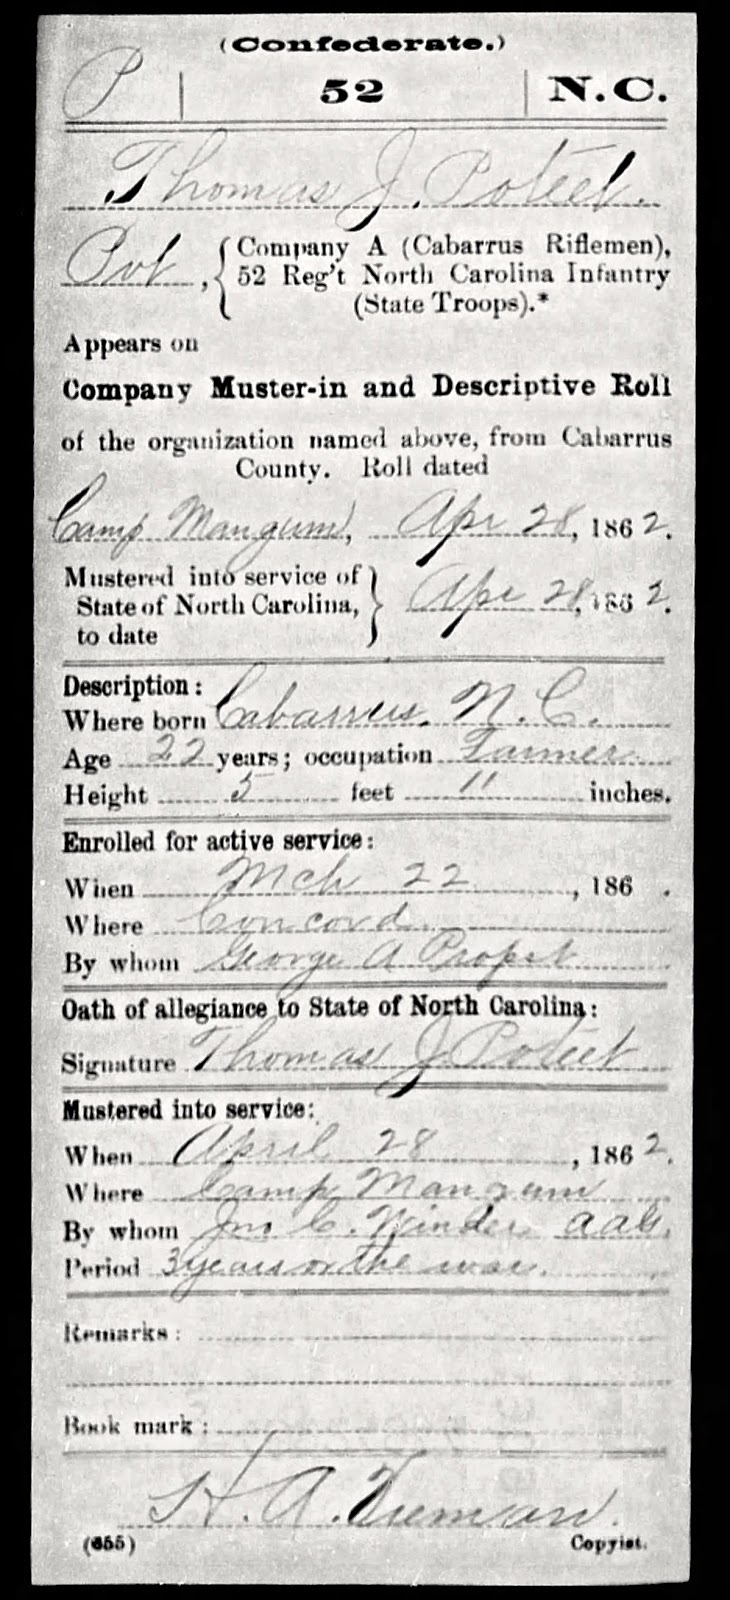 (Confederate.)
P | 52 | N.C.
Thomas J. Poteet.
Pvt, { Company A (Cabarrus Riflemen),
52 Reg't North Carolina Infantry
(State Troops).*
Appears on
Company Muster-in and Descriptive Roll
of the organization named above, from Cabarrus
County. Roll dated
Camp Mangum, Apr 28, 1862.
Mustered into service of
State of North Carolina, } Apr 28, 1862.
to date
Description:
Where born Cabarrus, N.C.
Age 22 years; occupation Farmer
Height 5 feet 11 inches.
Enrolled for active service:
When Mch 22, 186 .
Where Concord
By whom George A Propst
Oath of allegiance to State of North Carolina:
Signature Thomas J Poteet
Mustered into service:
When April 28, 1862.
Where Camp Mangum
By whom Jno C. Winder
Period 3 years or the war.
Remarks:
Book mark:
H. A.
(655) Copyist.